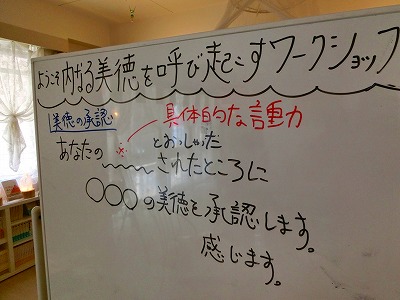 ようこそ 内なる美徳を呼び起こすワークショップ
美徳の承認
具体的な言動
あなたの 〰〰 とおっしゃった
されたところに
○○○の美徳を承認します。
感じます。